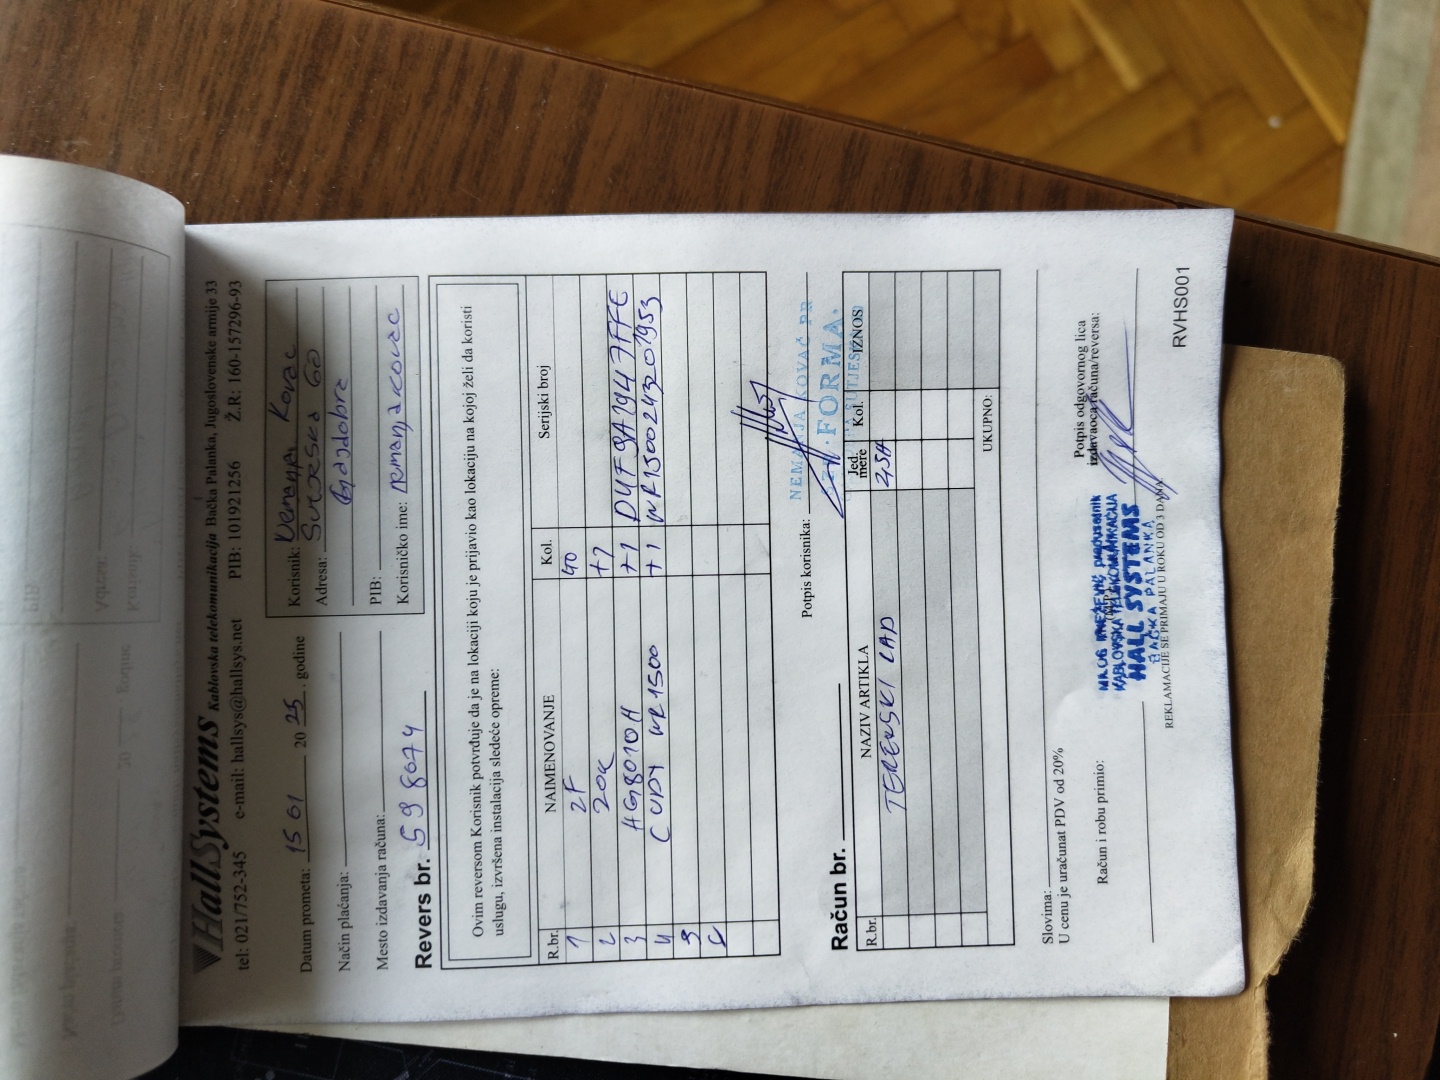 HallSystems Kablovska telekomunikacija Bačka Palanka, Jugoslovenske armije 33
tel: 021/752-345 e-mail: hallsys@hallsys.net PIB: 101921256 Ž.R: 160-157296-93
Datum prometa: 15 01 20 25. godine
Način plaćanja:
Mesto izdavanja računa:
Revers br. 59 8674
Korisnik: Nemanja Kovac
Adresa: 60
Gajdobra
PIB:
Korisničko ime:
Ovim reversom Korisnik potvrđuje da je na lokaciji koju je prijavio kao lokaciju na kojoj želi da koristi
uslugu, izvršena instalacija sledeće opreme:
R.br. NAIMENOVANJE Kol. Serijski broj
1 2F 40
2 20K +7
3 HG8010H +1
4 CUDY WR1500 +1
5
Potpis korisnika:
NEMANJA KOVAČ PR
FORMA
Račun br.
R.br. NAZIV ARTIKLA Jed. mere Kol. IZNOS
TERENSKI RAD
UKUPNO:
Slovima:
U cenu je uračunat PDV od 20%
Račun i robu primio:
Potpis odgovornog lica
izdavaoca računa/reversa:
KABLOVSKA TELEKOMUNIKACIJA
HALL SYSTEMS
BAČKA PALANKA
REKLAMACIJE SE PRIMAJU U ROKU OD 3 DANA
RVHS001